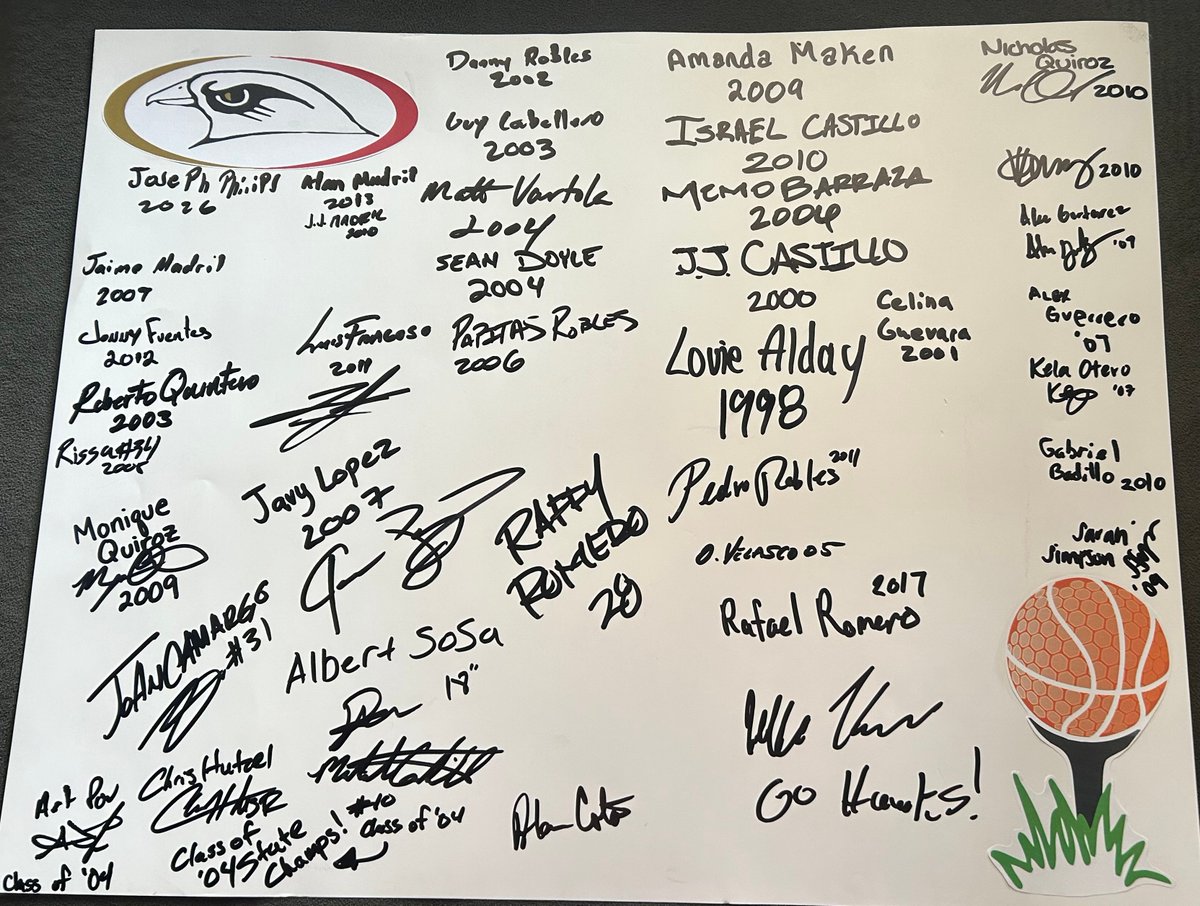 Danny Robles
2002
Amanda Maken
2009
Nicholas
Quiroz
2010
Guy Caballero
2003
ISRAEL CASTILLO
2010
2010
JosePh PhiliPs
2026
Alan Madril
2013
J.J. MADRIL
2010
Matt Vartok
2004
MEMO BARRAZA
2004
Alan
'07
Jaime Madril
2009
SEAN DOYLE
2004
J.J. CASTILLO
2000
Celina
Guevara
2001
ALEX
Guerrero
'07
Jonny Fuentes
2012
Luis Fragoso
2011
PAPITAS ROBLES
2006
Louie Alday
1998
Kela Otero
'07
Roberto Quintero
2003
Rissa #34
Javy Lopez
2007
Pedro Robles 2011
Gabriel
Badillo 2010
Monique
Quiroz
2009
RAFFY
ROMEDO
20
O. VELASCO 05
Sarah
Simpson
JOAN CAMARGO
#31
Albert SoSa
18"
Rafael Romero 2017
GO Hawks!
Chris Hutzel
Class of
'04 State
Champs!
#10
Class of '04
Art
Class of '04